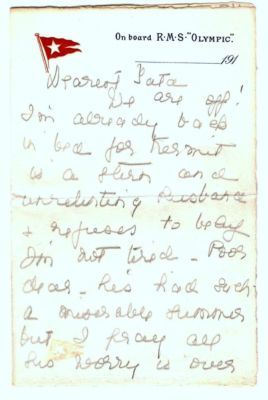 On board R·M·S·"OLYMPIC".
191
Dearest Bata
We are off!
I'm already back
in bed for Kermit
is a stern and
unrelenting husband
& refuses to belay
I'm not tired - Poor
dear - his had such
a miserable summer
but I pray all
his worry is over